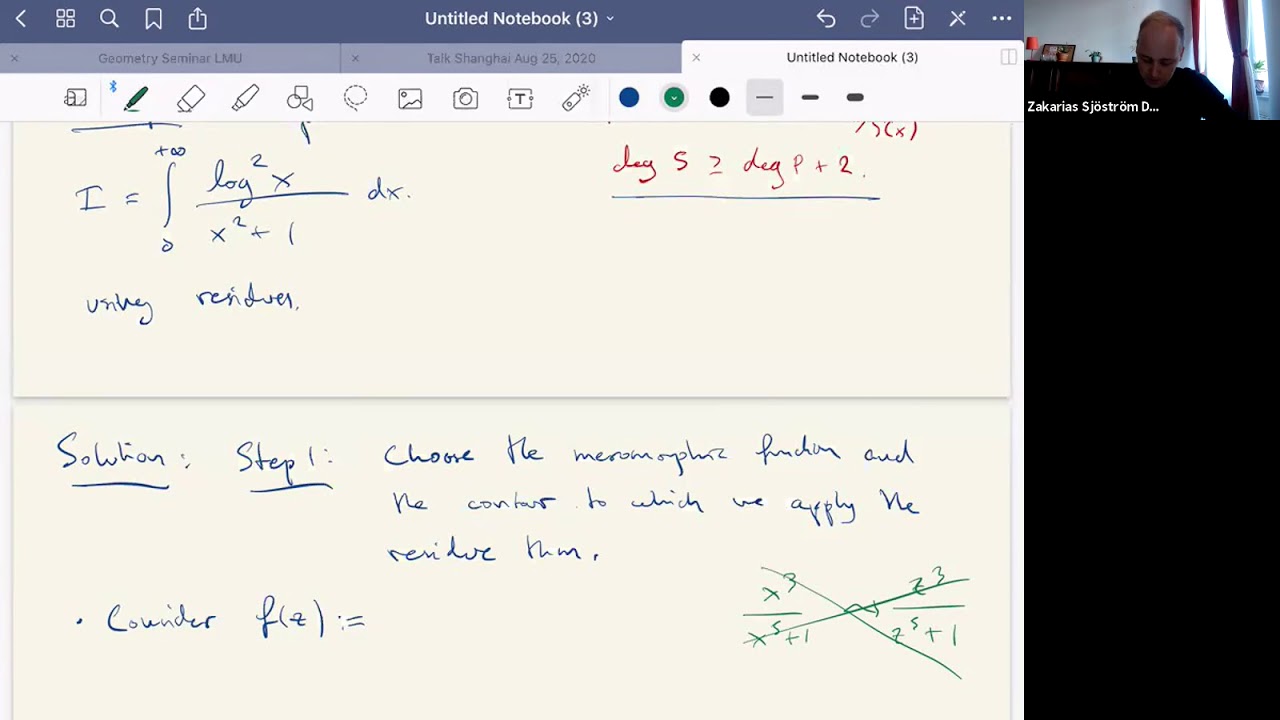 Untitled Notebook (3)
Geometry Seminar LMU
Talk Shanghai Aug 25, 2020
Untitled Notebook (3)
Zakarias Sjöström D...
S(x)
deg S ≥ deg P + 2.
I = ∫₀^{+∞} log² x / (x² + 1) dx.
using residues.
Solution: Step 1: Choose the meromorphic function and
the contour to which we apply the
residue thm.
x³ / (x⁵ + 1) → z³ / (z⁵ + 1)
· Consider f(z) :=